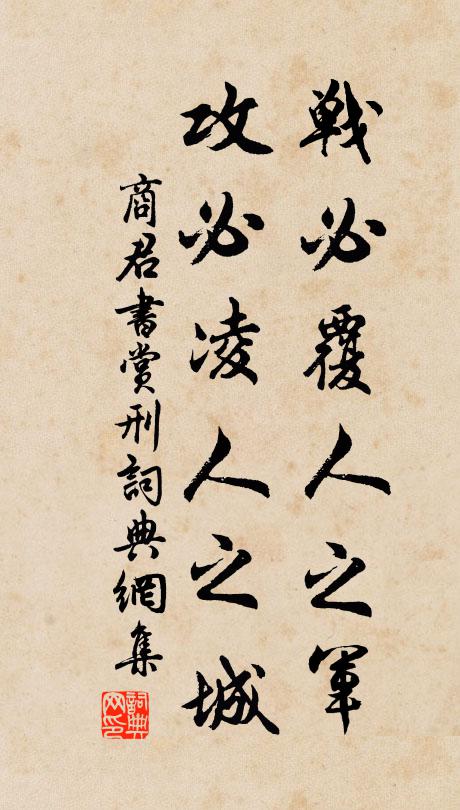 戰必覆人之軍
攻必凌人之城
商君書賞刑詞典網集
詞典网印